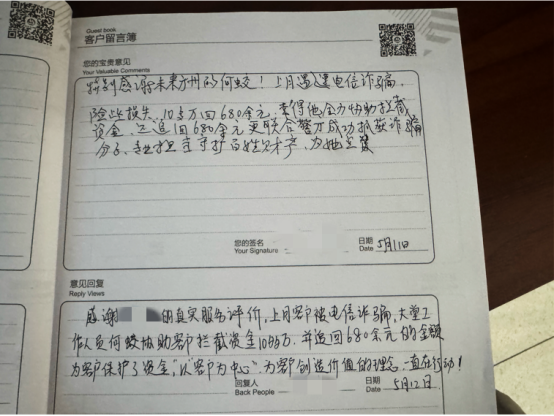 Guest book
客户留言簿
您的宝贵意见
Your Valuable Comments
特别感谢未来方州的何蛟!上月遭遇电信诈骗
险些损失10万回680余元,幸得他全力协助拦截
资金,只追回680余元更联合警方成功抓获诈骗
分子,专业担当守护百姓财产,为她点赞
您的签名
Your Signature
日期
Date 5月11日
意见回复
Reply Views
感谢 的真实服务评价,上月客户被电信诈骗,大堂工
作人员何蛟协助客户拦截资金10万,并追回680余元的金额
为客户保护了资金,"以客户为中心",为客户创造价值的理念,一直在行动!
回复人
Back People
日期
Date 5月12日